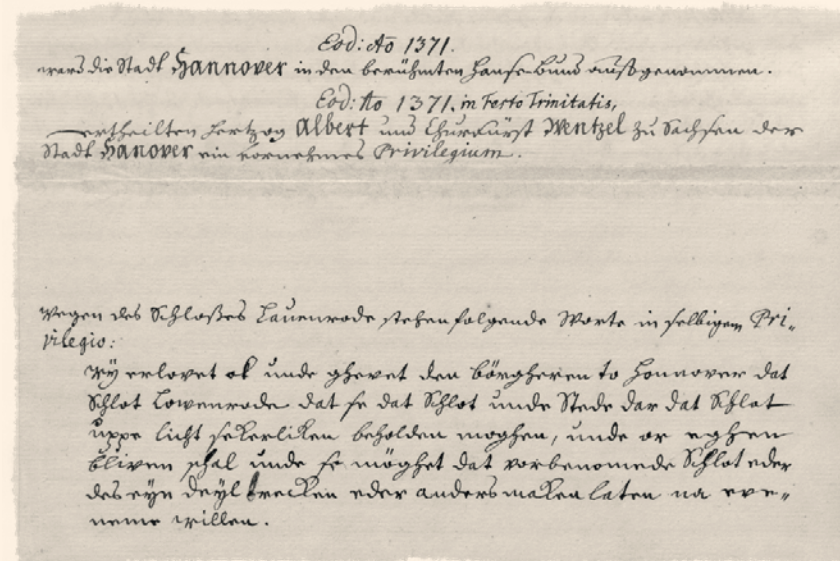 Eod: Ao 1371.
ward die Stadt Hannover in den berühmten Hanse-Bund auffgenommen.
Eod: Ao 1371. in Festo Trinitatis,
ertheilten Hertzog Albert und Churfürst Wentzel zu Sachsen der
Stadt Hanover ein vornehmes Privilegium.
Wegen des Schloßes Lauenrode stehen folgende Worte in selbigem Pri-
vilegio:
Wy erlovet ok unde ghevet den börgheren to Honnover dat
Schlot Lowenrode dat se dat Schlot unde Stede dar dat Schlot
uppe licht sekerliken beholden moghen, unde or eghen
bliven schal unde se möghet dat vorbenomede Schlot eder
des eyn deyl brecken eder anders maken laten na
neme willen.